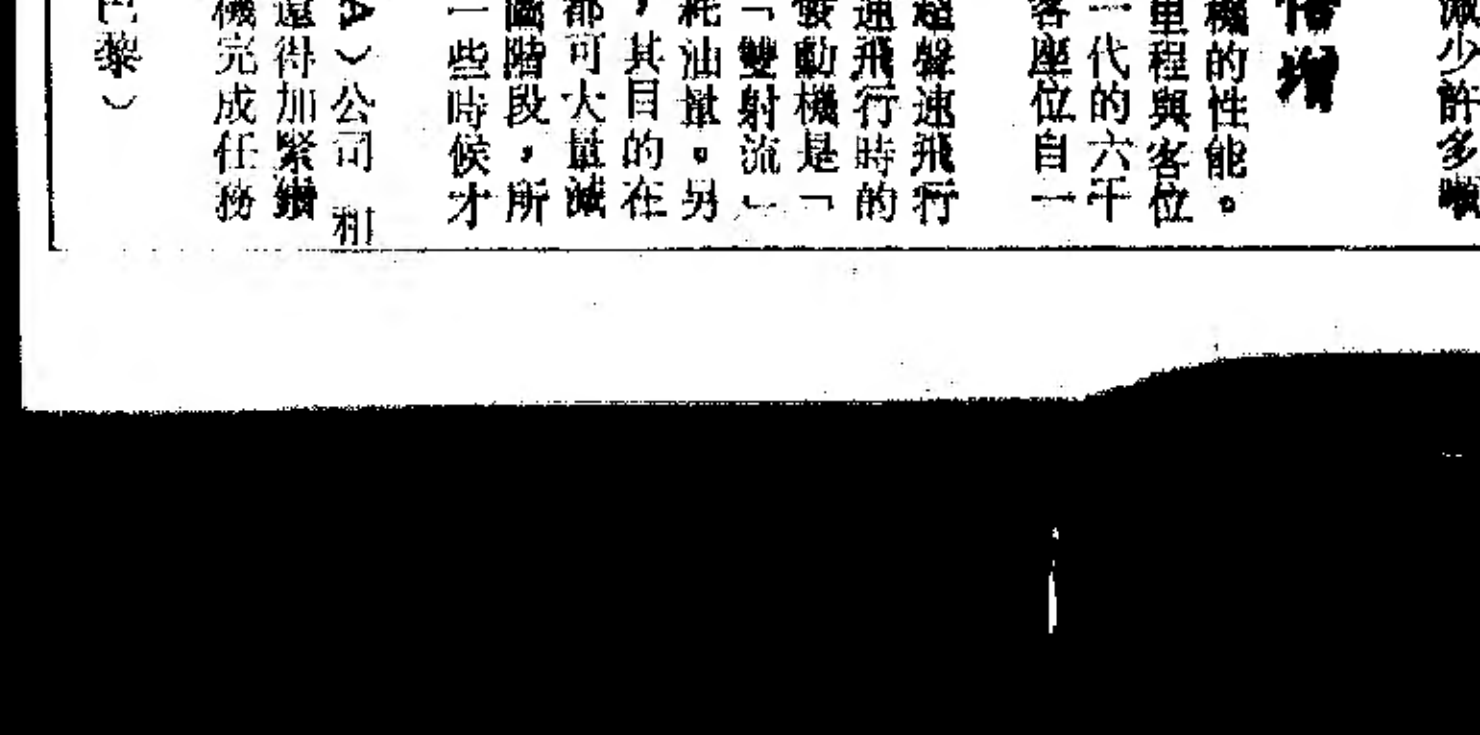 減少許多噸
倍增
機的性能。
里程與客位
一代的六千
客座位自一
超聲速飛行
速飛行時的
發動機是「
「雙射流」
耗油量。另
，其目的在
都可大量減
圖階段，所
一些時候才
A）公司 相
還得加緊鑽
機完成任務
巴黎）